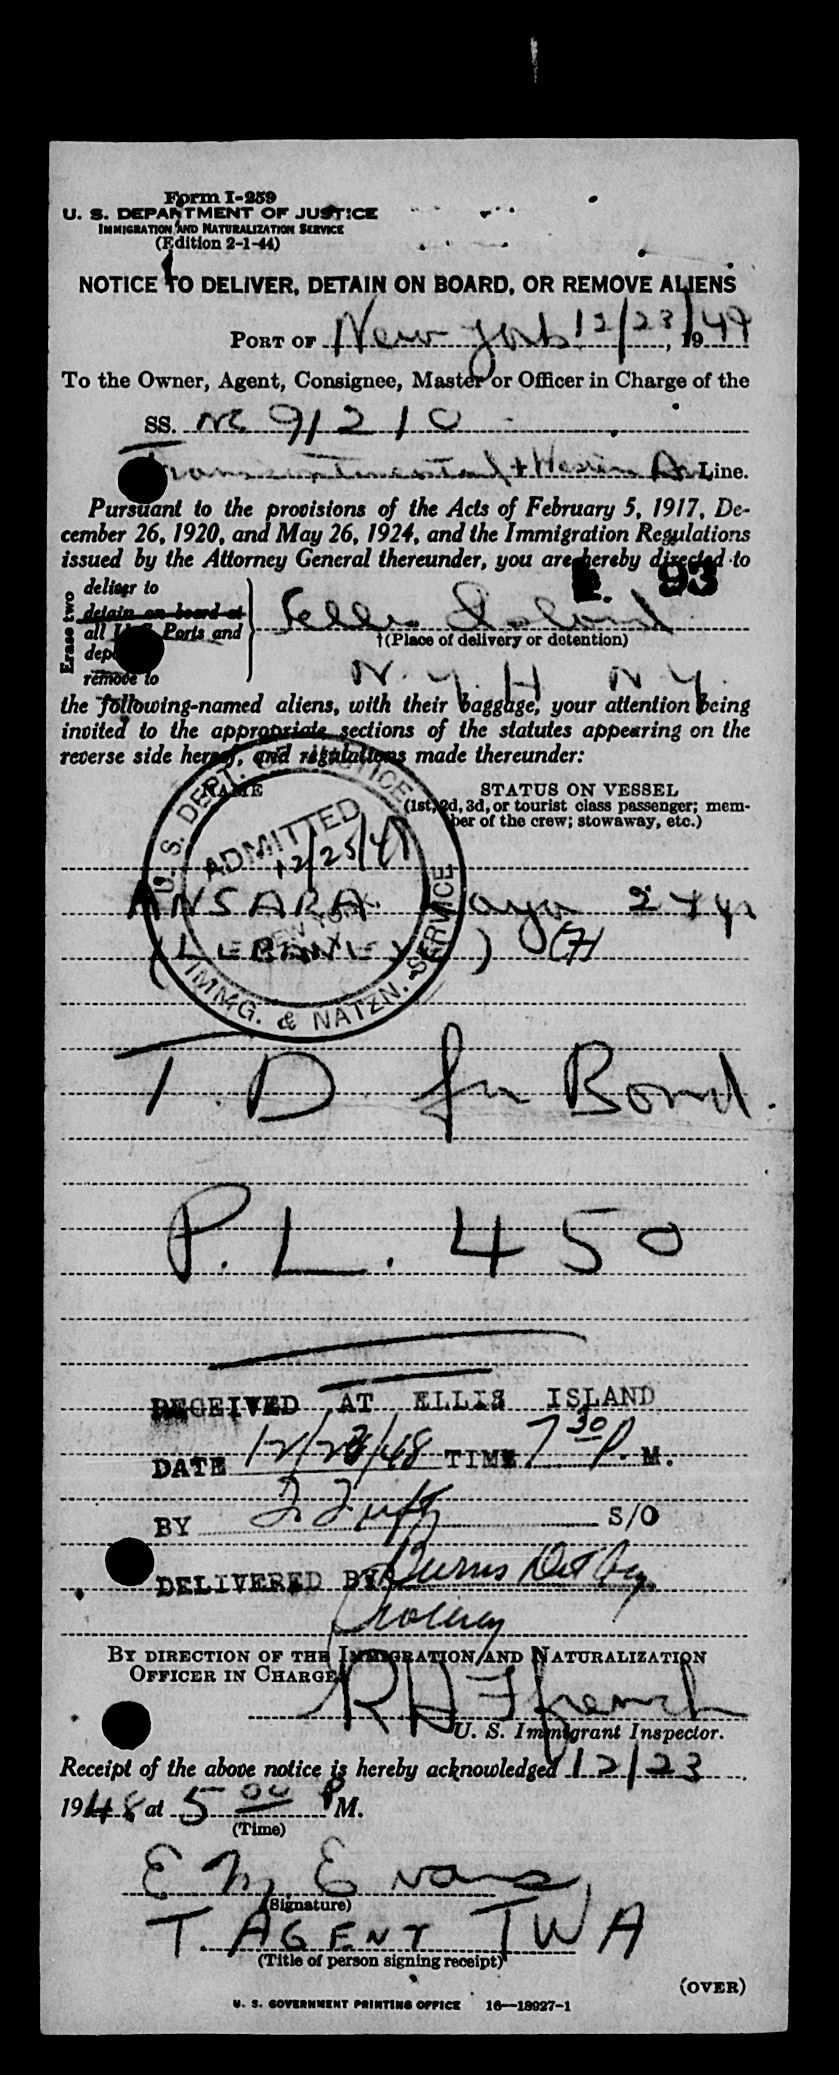 Form I-259
U. S. DEPARTMENT OF JUSTICE
IMMIGRATION AND NATURALIZATION SERVICE
(Edition 2-1-44)
NOTICE TO DELIVER, DETAIN ON BOARD, OR REMOVE ALIENS
PORT OF New York 12/23/, 1949
To the Owner, Agent, Consignee, Master or Officer in Charge of the
SS. NC 91210
Transcontinental + Western Air Line.
Pursuant to the provisions of the Acts of February 5, 1917, De-
cember 26, 1920, and May 26, 1924, and the Immigration Regulations
issued by the Attorney General thereunder, you are hereby directed to
93
Erase two
deliver to
detain on board at
all U.S. Ports and
remove to
Ellis Island
†(Place of delivery or detention)
N. Y. H N. Y.
the following-named aliens, with their baggage, your attention being
invited to the appropriate sections of the statutes appearing on the
reverse side hereof, and regulations made thereunder:
NAME
STATUS ON VESSEL
(1st, 2d, 3d, or tourist class passenger; mem-
ber of the crew; stowaway, etc.)
U. S. DEPT. OF JUSTICE
ADMITTED
12/25/4
NEW YORK
IMMG. & NATZN. SERVICE
ANSARA
T. D for Bond.
P. L. 450
RECEIVED AT ELLIS ISLAND
DATE 12/23/48 TIME 7 30 P. M.
BY S/O
DELIVERED BY Burns Det Agy
BY DIRECTION OF THE IMMIGRATION AND NATURALIZATION
OFFICER IN CHARGE
R H Ffrench
U. S. Immigrant Inspector.
Receipt of the above notice is hereby acknowledged 12/23,
1948 at 5 00 P M.
(Time)
E M Evans
(Signature)
T. AGENT TWA
(Title of person signing receipt)
(OVER)
U. S. GOVERNMENT PRINTING OFFICE 16—18927-1